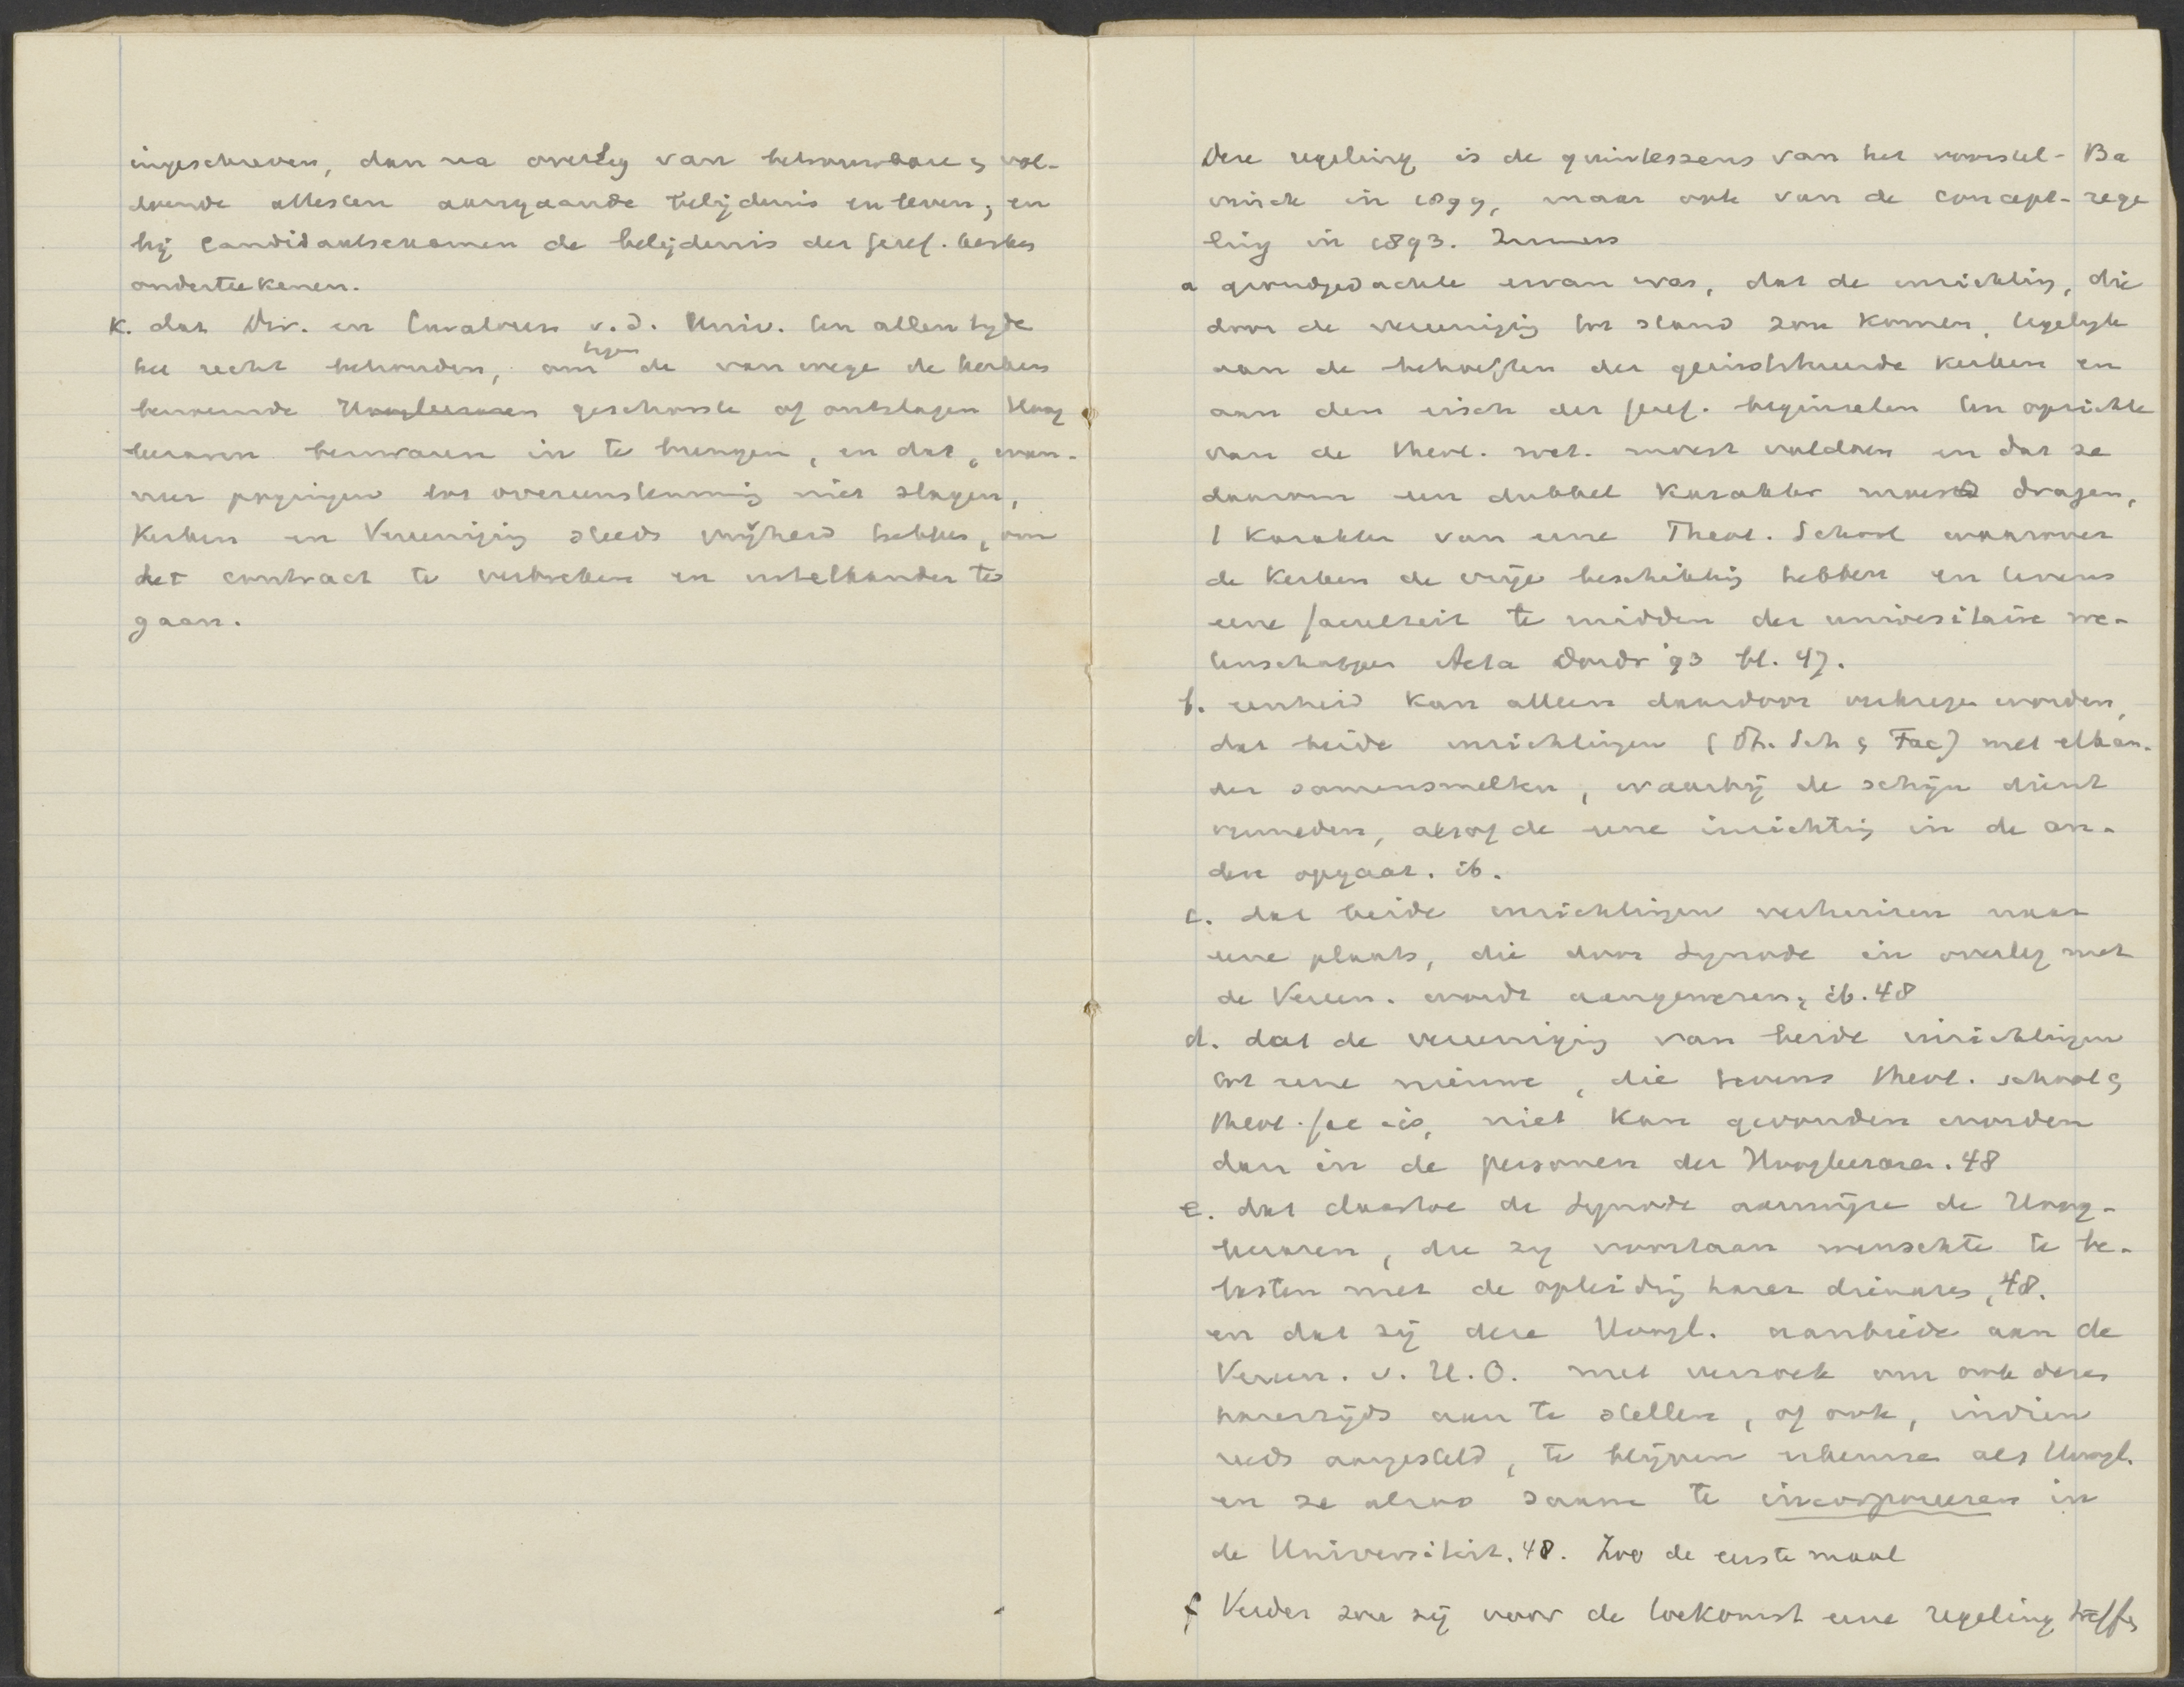 ingeschreven, dan na overleg van betrouwbare & vol-
doende attesten aangaande belijdenis en leven; en
bij Candidaatsexamen de belijdenis der geref. kerken
onderteekenen.
k. dat Dir. en Curatoren v.d. Univ. ten allen tyde
het recht behouden, om tegen de van wege de kerken
benoemde Hoogleeraren geschorste of ontslagen Hoog
leeraren bezwaren in te brengen, en dat, wan-
neer pogingen tot overeenstemming niet slagen,
Kerken en Vereeniging steeds vrijheid hebben, om
het contract te verbreken en uitelkander te
gaan.
Deze regeling is de quintessens van het voorstel-Ba
vinck in 1899, maar ook van de concept-rege
ling in 1893. Immers
a grondgedachte ervan was, dat de inrichting, die
door de vereeniging tot stand zou komen, tegelyk
aan de behoeften der geinstitueerde Kerken en
aan den eisch der geref. beginselen ten opzichte
van de theol. wet. moest voldoen en dat ze
daarom een dubbel karakter moest dragen,
't karakter van eene Theol. School waarover
de Kerken de vrije beschikking hebben en tevens
eene faculteit te midden der universitaire we-
tenschappen Acta Dordr '93 bl. 47.
b. eenheid kan alleen daardoor verkregen worden,
dat beide inrichtingen (Th. Sch & Fac) met elkan-
der samensmelten, waarbij de schijn dient
vermeden, alsof de eene inrichting in de an-
dere opgaat. ib.
c. dat beide inrichtingen verhuizen naar
eene plaats, die door Synode in overleg met
de Vereen. wordt aangewezen; ib. 48
d. dat de vereeniging van beide inrichtingen
tot eene nieuwe, die tevens theol. school &
theol. fac is, niet kan gevonden worden
dan in de personen der Hoogleeraren. 48
e. dat daartoe de Synode aanwijze de Hoog-
leeraren, die zy voortaan wenschte te be-
lasten met de opleiding harer dienares, 48.
en dat zij deze Hoogl. aanbiede aan de
Vereen. v. H.O. met verzoek om ook dezen
harerzijds aan te stellen, of ook, indien
reeds aangesteld, te blijven erkennen als Hoogl.
en ze alzoo saam te incorporeeren in
de Universiteit. 48. Zoo de eerste maal
f Verder zou zij voor de toekomst eene regeling treffen